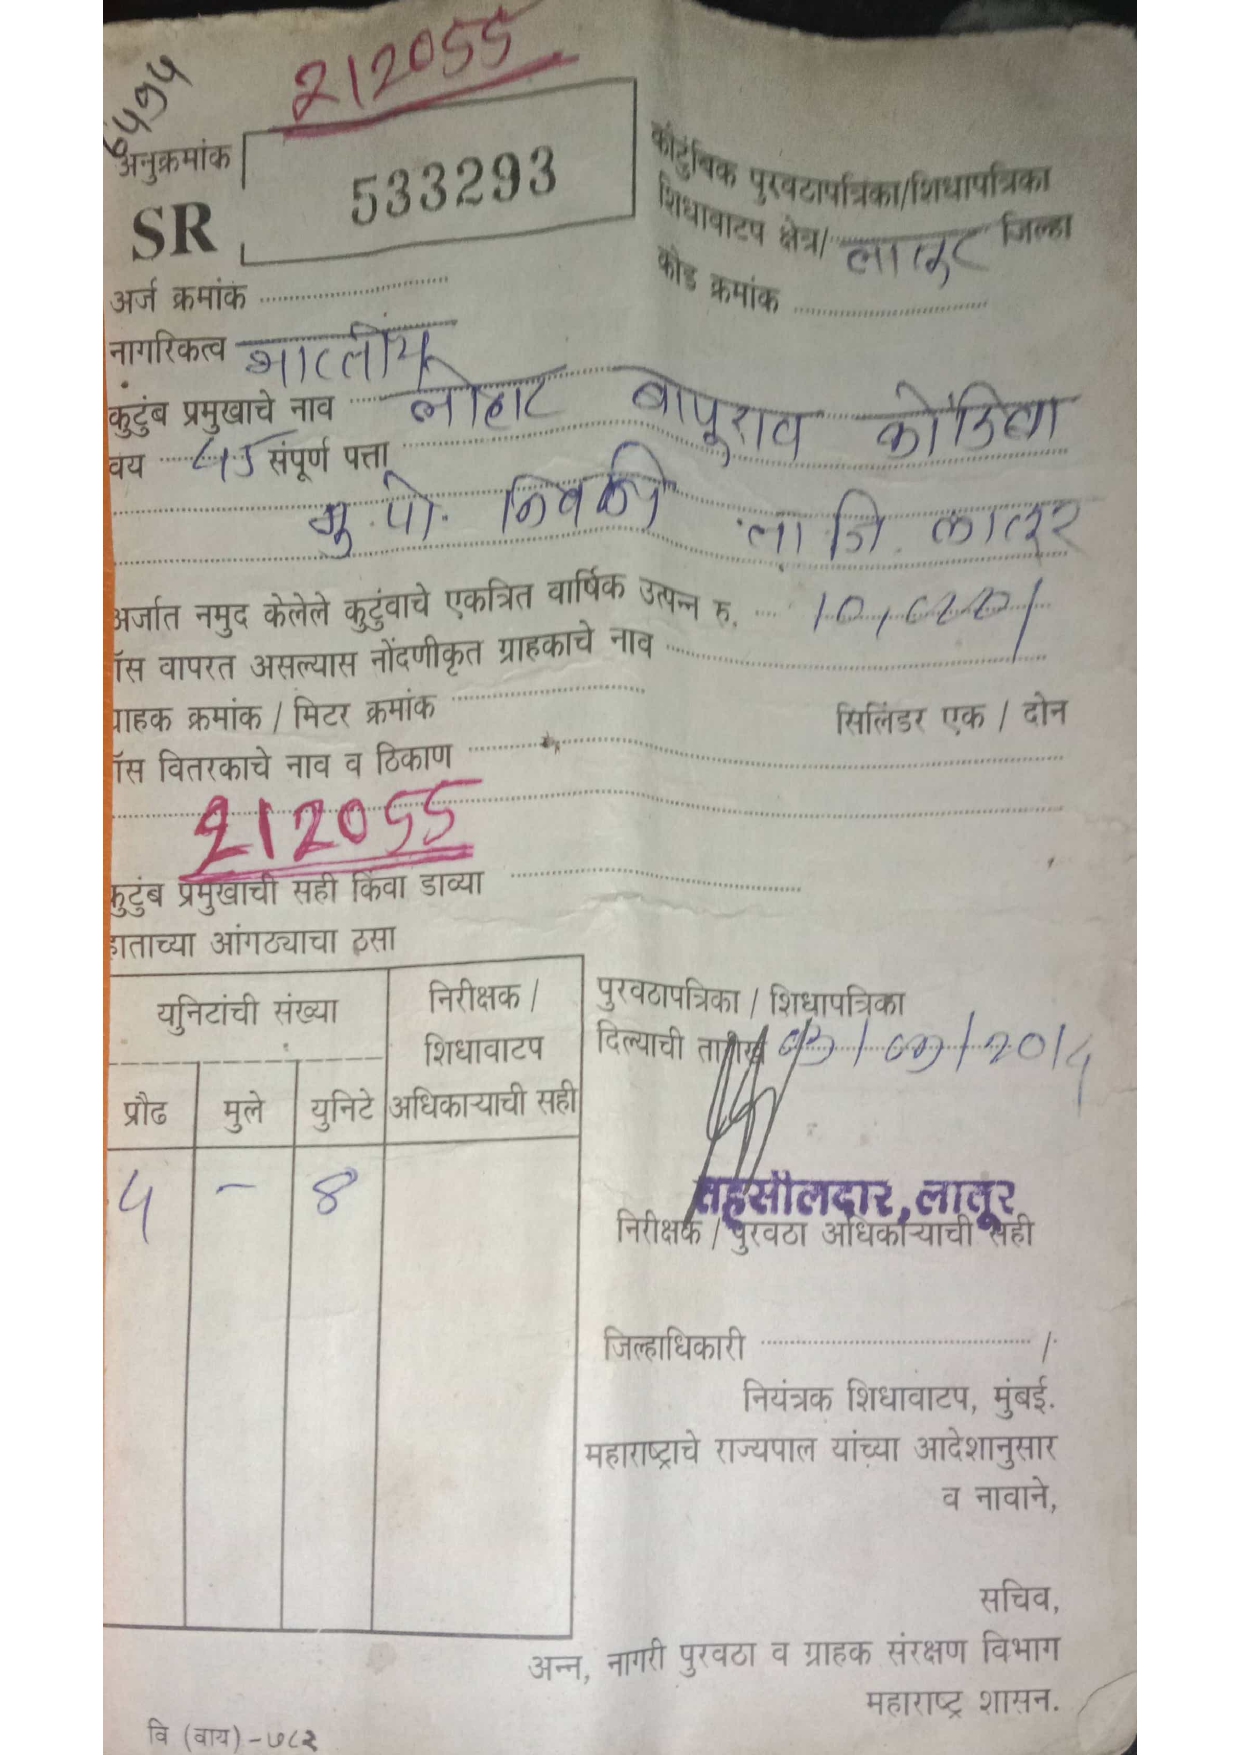 212055
अनुक्रमांक
SR 533293
कौटुंबिक पुरवठापत्रिका/शिधापत्रिका
शिधावाटप क्षेत्र/ लातूर जिल्हा
कोड क्रमांक
अर्ज क्रमांक
नागरिकत्व भारतीय
कुटुंब प्रमुखाचे नाव लोहार बापूराव
वय 45 संपूर्ण पत्ता
मु.पो. निवळी ता जि. लातूर
अर्जात नमुद केलेले कुटुंवाचे एकत्रित वार्षिक उत्पन्न रु.
ॉस वापरत असल्यास नोंदणीकृत ग्राहकाचे नाव
ग्राहक क्रमांक / मिटर क्रमांक सिलिंडर एक / दोन
ॉस वितरकाचे नाव व ठिकाण
212055
कुटुंब प्रमुखाची सही किंवा डाव्या
हाताच्या आंगठ्याचा ठसा
युनिटांची संख्या
निरीक्षक /
शिधावाटप
अधिकाऱ्याची सही
प्रौढ मुले युनिटे
4 - 8
पुरवठापत्रिका / शिधापत्रिका
दिल्याची तारीख
तहसीलदार, लातूर
निरीक्षक / पुरवठा अधिकाऱ्याची सही
जिल्हाधिकारी /
नियंत्रक शिधावाटप, मुंबई.
महाराष्ट्राचे राज्यपाल यांच्या आदेशानुसार
व नावाने,
सचिव,
अन्न, नागरी पुरवठा व ग्राहक संरक्षण विभाग
महाराष्ट्र शासन.
वि (वाय) -७८२